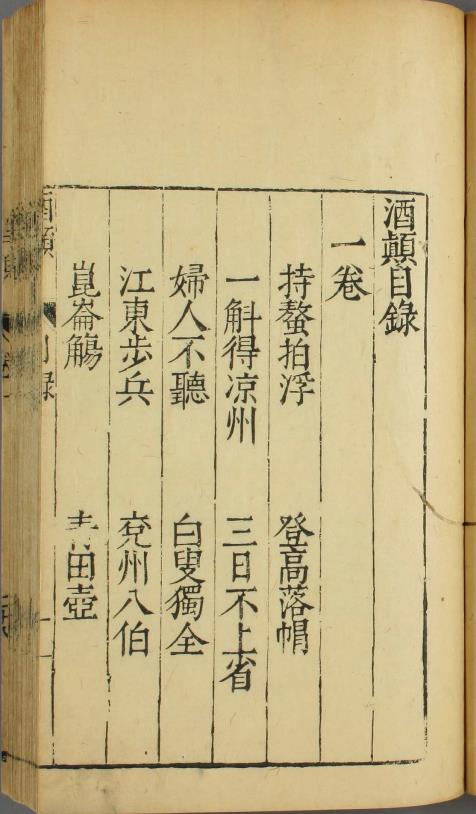 酒顛目録
一卷
持螯拍浮　登高落帽
一斛得凉州　三日不上省
婦人不聽　白叟獨全
江東步兵　兖州八伯
崑崙觴　青田壺
酒顛　目録　一